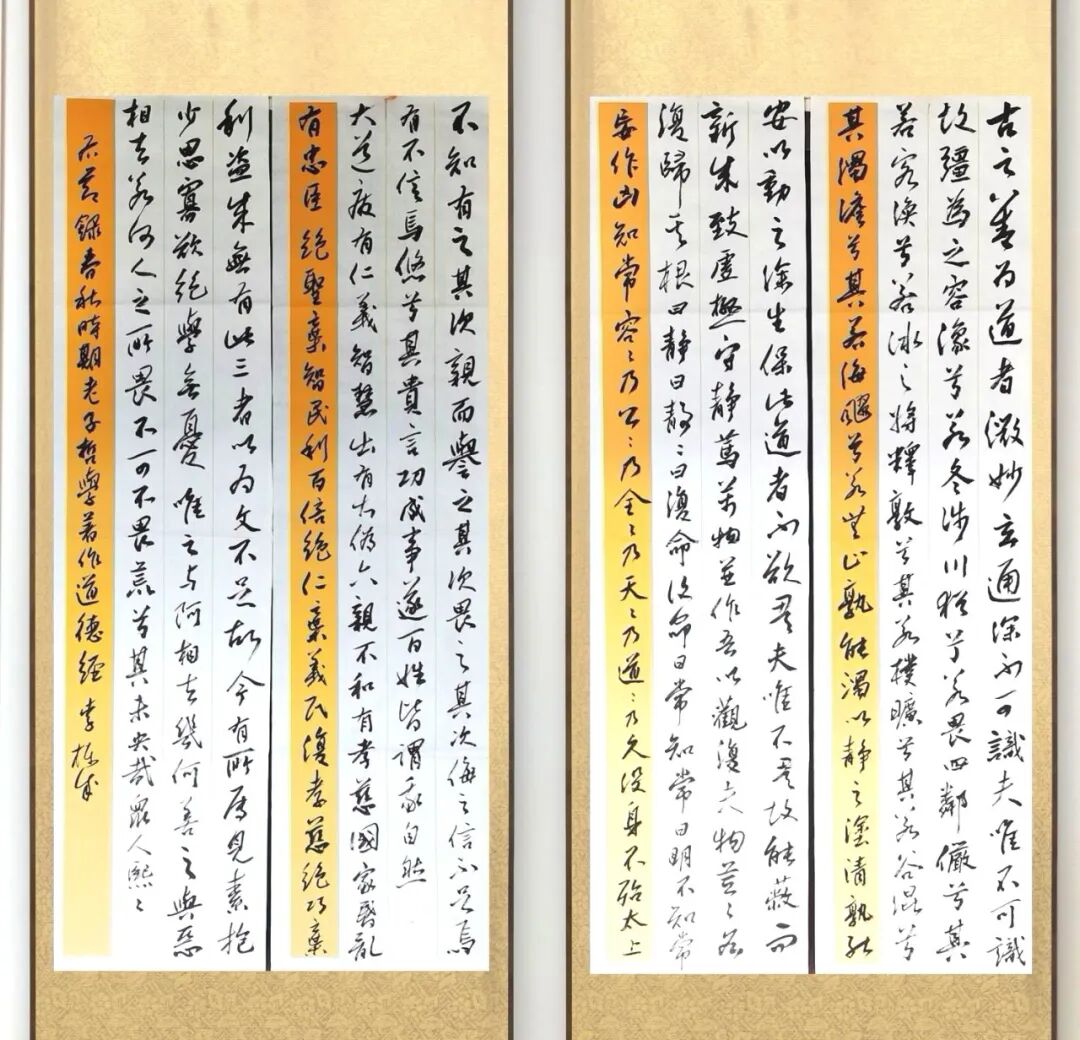 古之善为道者微妙玄通深不可識夫唯不可識
故彊為之容豫兮若冬涉川猶兮若畏四鄰儼兮其
若客渙兮若冰之將釋敦兮其若樸曠兮其若谷混兮
其濁澹兮其若海飂兮若無止孰能濁以静之塗清孰能
安以動之徐生保此道者不欲盈夫唯不盈故能蔽而
新成致虚極守静篤萬物並作吾以觀復夫物芸〻各
復歸其根曰静曰静〻曰復命復命曰常知常曰明不知常
妄作凶知常容〻乃公〻乃全〻乃天〻乃道〻乃久没身不殆太上
不知有之其次親而譽之其次畏之其次侮之信不足焉
有不信焉悠兮其貴言功成事遂百姓皆謂我自然
大道廢有仁義智慧出有大偽六親不和有孝慈國家昏亂
有忠臣絕聖棄智民利百倍絕仁棄義民復孝慈絕巧棄
利盗成無有此三者以为文不足故令有所属見素抱
少思寡欲絕學無憂唯之与阿相去幾何善之與惡
相去若何人之所畏不可不畏荒兮其未央哉眾人熙〻
節録春秋時期老子哲學著作道德經 李